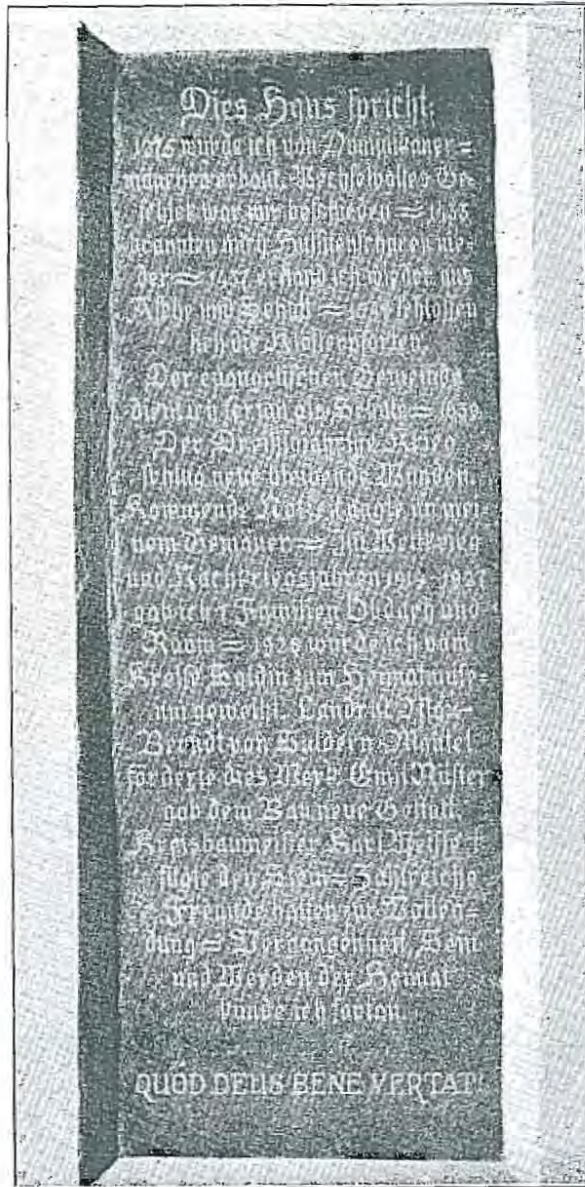 Dies Haus spricht:
1275 wurde ich von Dominikaner=
mönchen erbaut. Wechselvolles Ge=
schick war mir beschieden = 1433
brannten mich Hussitenscharen nie=
der = 1437 erstand ich wieder aus
Asche und Schutt = schlossen
sich die Klosterpforten.
Der evangelischen Gemeinde
dient ich fortan als Schule =
Der Dreißigjährige Krieg
schlug neue bleibende Wunden.
Kommende Not an mei=
nem Gemäuer = Im Weltkrieg
und Nachkriegsjahren 1914-1927
gab ich Familien Obdach und
Raum = 1928 wurde ich vom
Kreise Soldin zum Heimatmuse=
um geweiht. Landrat Max=
Berndt von Saldern-Mantel
förderte dies Werk. Emil
gab dem Bau neue Gestalt.
Kreisbaumeister Karl
fügte den Stein = Zahlreiche
Freunde halfen zur Vollen=
dung = Vergangenheit, Sein
und Werden der Heimat
künde ich fortan.
QUOD DEUS BENE VERTAT!